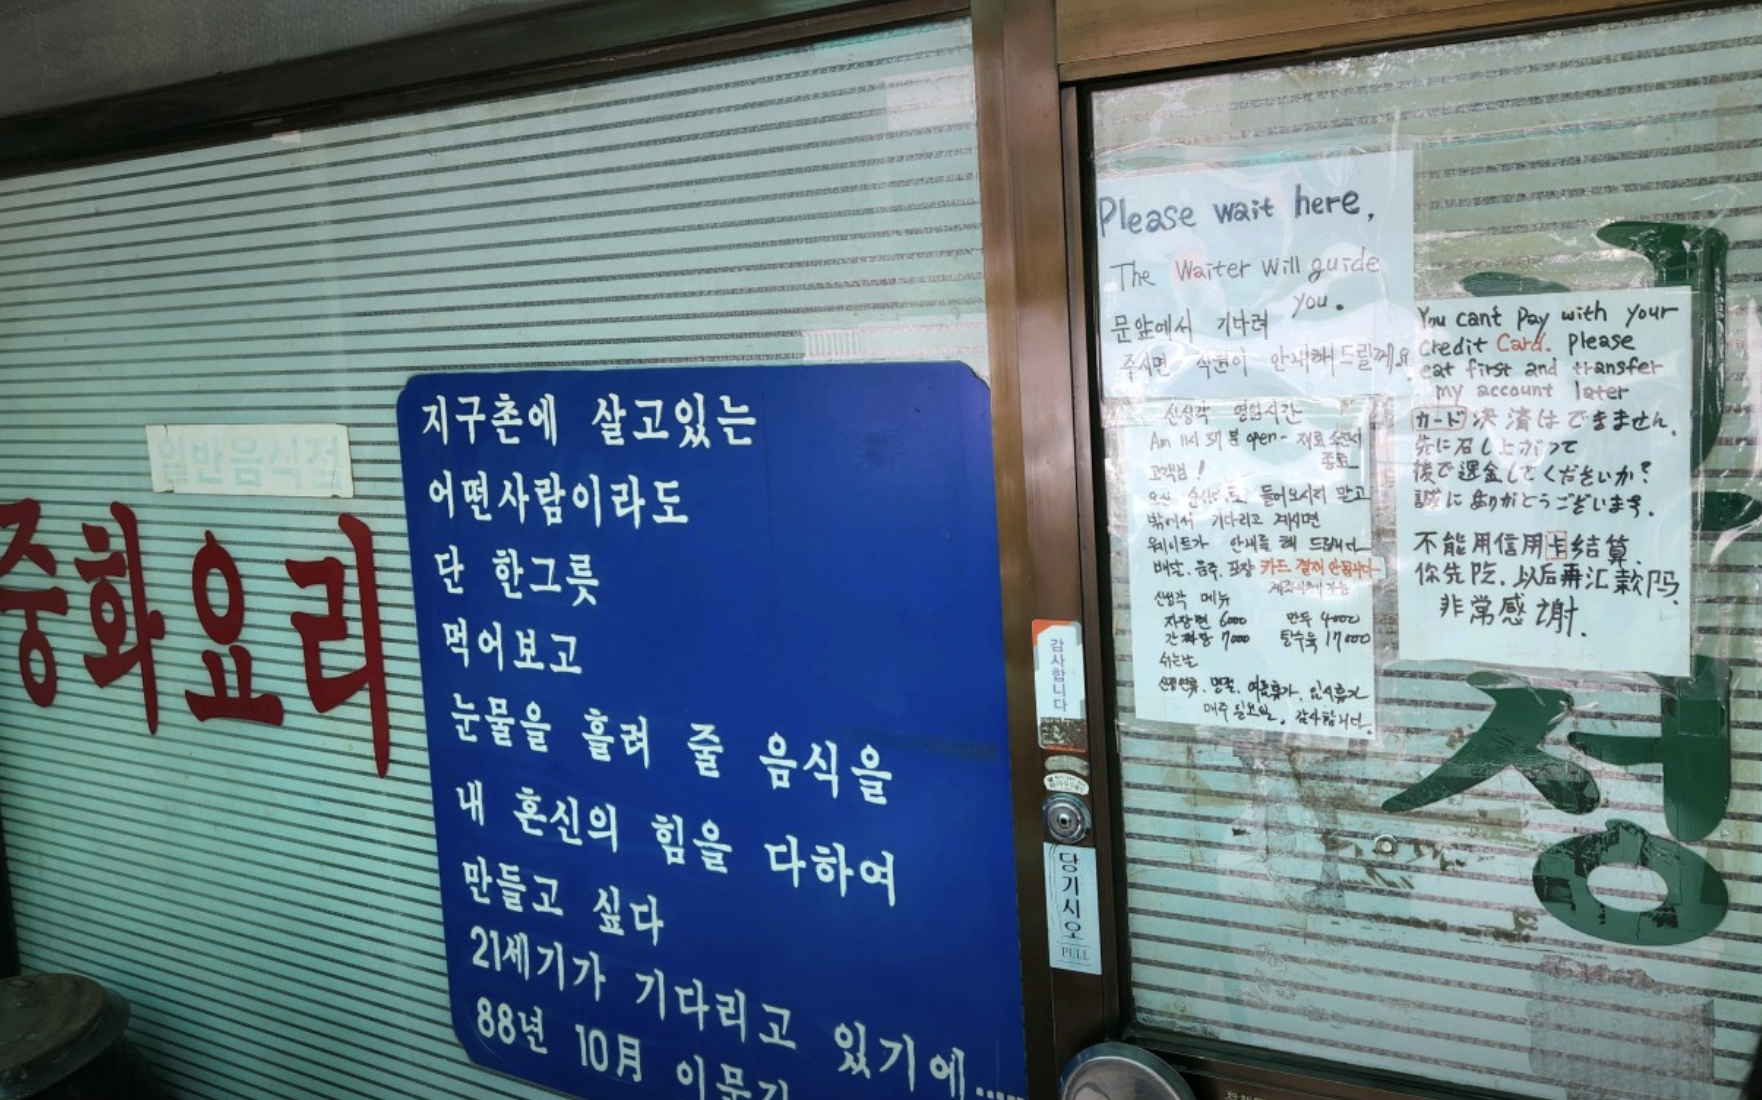 일반음식점
중화요리
지구촌에 살고있는
어떤사람이라도
단 한그릇
먹어보고
눈물을 흘려 줄 음식을
내 혼신의 힘을 다하여
만들고 싶다
21세기가 기다리고 있기에.....
88년 10月 이문길
감사합니다
당기시오
PULL
Please wait here,
The Waiter will guide
you.
문앞에서 기다려
주시면 직원이 안내해드릴게요
신성각 영업시간
Am 11시 37분 open - 재료 소진시
종료
고객님!
오신 순서대로 들어오시지 말고
밖에서 기다리고 계시면
웨이트가 안내를 해 드립니다
배달, 음주, 포장 카드 결제 안됩니다
신성각 메뉴
자장면 6000 만두 4000
간짜장 7000 탕수육 17000
쉬는날
신정연휴, 명절, 여름휴가, 임시휴가
매주 일요일, 감사합니다.
You cant pay with your
credit Card. please
eat first and transfer
my account later
カード決済はできません.
先に召し上がって
後で送金してくださいか?
誠にありがとうございます.
不能用信用卡结算.
你先吃, 以后再汇款吗.
非常感谢.
정